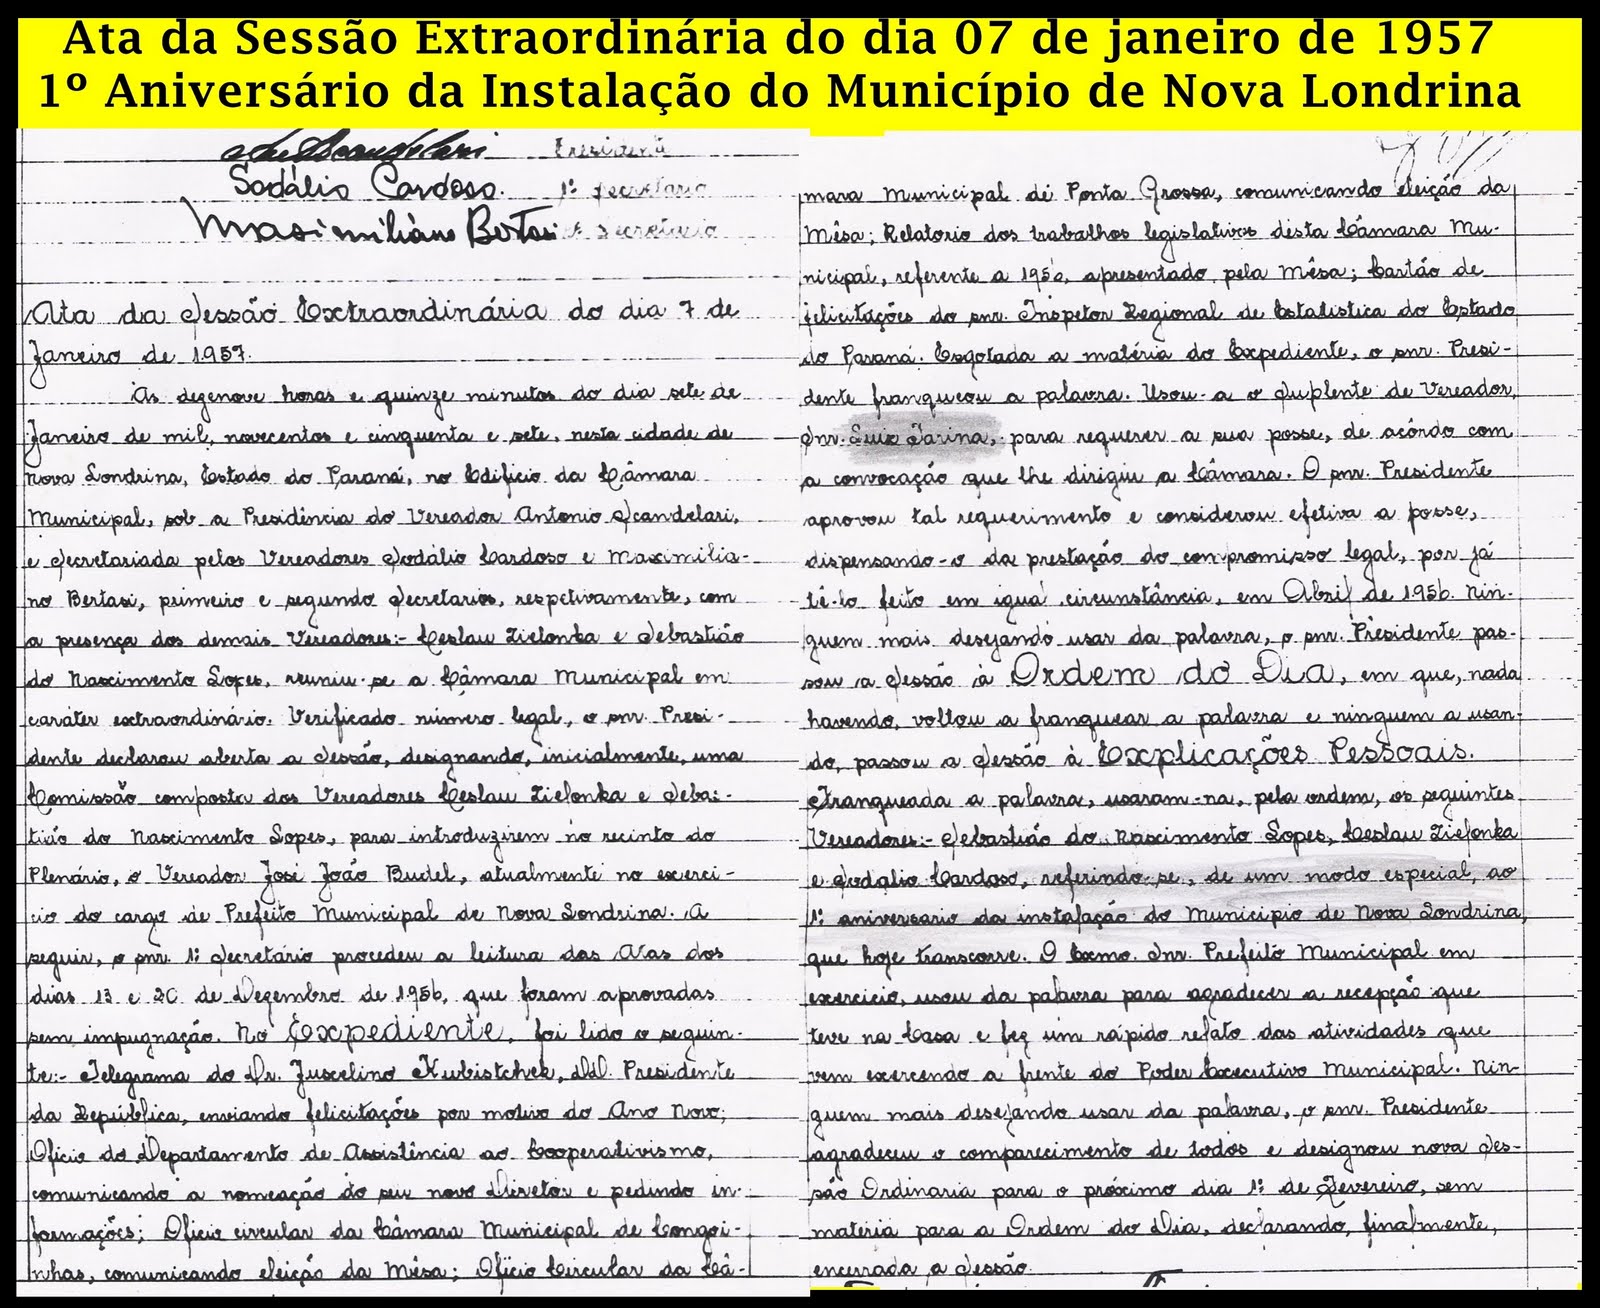 Ata da Sessão Extraordinária do dia 07 de janeiro de 1957
1º Aniversário da Instalação do Município de Nova Londrina
Presidente
Sodálio Cardoso. 1º Secretario
Maximiliano Bertasi 2º Secretário
Ata da Sessão Extraordinária do dia 7 de
Janeiro de 1957.
As dezenove horas e quinze minutos do dia sete de
Janeiro de mil, novecentos e cinquenta e sete, nesta cidade de
Nova Londrina, Estado do Paraná, no Edificio da Câmara
Municipal, sob a Presidência do Vereador Antonio Scandelari,
e Secretariada pelos Vereadores Sodálio Cardoso e Maximilia-
no Bertasi, primeiro e segundo Secretarios, respctivamente, com
a presença dos demais Vereadores:- Ceslau Zielonka e Sebastião
do Nascimento Lopes, reuniu-se a Câmara Municipal em
caráter extraordinário. Verificado número legal, o snr. Presi-
dente declarou aberta a Sessão, designando, inicialmente, uma
Comissão composta dos Vereadores Ceslau Zielonka e Sebas-
tião do Nascimento Lopes, para introduzirem no recinto do
Plenário, o Vereador José João Budel, atualmente no exerci-
cio do cargo de Prefeito Municipal de Nova Londrina. A
seguir, o snr. 1º Secretário procedeu a leitura das Atas dos
dias 13 e 20 de Dezembro de 1956, que foram aprovadas
sem impugnação. No Expediente, foi lido o seguin-
te:- Telegrama do Dr. Juscelino Kubistchek, DD. Presidente
da República, enviando felicitações por motivo do Ano Novo;
Oficio do Departamento de Assistência ao Cooperativismo,
comunicando a nomeação do seu novo Diretor e pedindo in-
formações; Oficio circular da Câmara Municipal de Congoi-
nhas, comunicando eleição da Mêsa; Oficio Circular da Câ-
mara Municipal de Ponta Grossa, comunicando eleição da
Mêsa; Relatorio dos trabalhos legislativos desta Câmara Mu-
nicipal, referente a 1956, apresentado pela Mêsa; Cartão de
felicitações do snr. Inspetor Regional de Estatistica do Estado
do Paraná. Esgotada a matéria do Expediente, o snr. Presi-
dente franqueou a palavra. Usou-a o Suplente de Vereador,
Snr. Luiz Farina, para requerer a sua posse, de acôrdo com
a convocação que lhe dirigiu a Câmara. O snr. Presidente
aprovou tal requerimento e considerou efetiva a posse,
dispensando-o da prestação do compromisso legal, por já
tê-lo feito em igual circunstância, em Abril de 1956. Nin-
guem mais desejando usar da palavra, o snr. Presidente pas-
sou a Sessão à Ordem do Dia, em que, nada
havendo, voltou a franquear a palavra e ninguem a usan-
do, passou a Sessão à Explicações Pessoais.
Franqueada a palavra, usaram-na, pela ordem, os seguintes
Vereadores:- Sebastião do Nascimento Lopes, Ceslau Zielonka
e Sodálio Cardoso, referindo-se, de um modo especial, ao
1º aniversario da instalação do Municipio de Nova Londrina,
que hoje transcorre. O Exmo. Snr. Prefeito Municipal em
exercicio, usou da palavra para agradecer a recepção que
teve na Casa e fez um rápido relato das atividades que
vem exercendo a frente do Poder Executivo Municipal. Nin-
guem mais desejando usar da palavra, o snr. Presidente
agradeceu o comparecimento de todos e designou nova Ses-
são Ordinaria para o próximo dia 1º de Fevereiro, sem
materia para a Ordem do Dia, declarando, finalmente,
encerrada a Sessão.